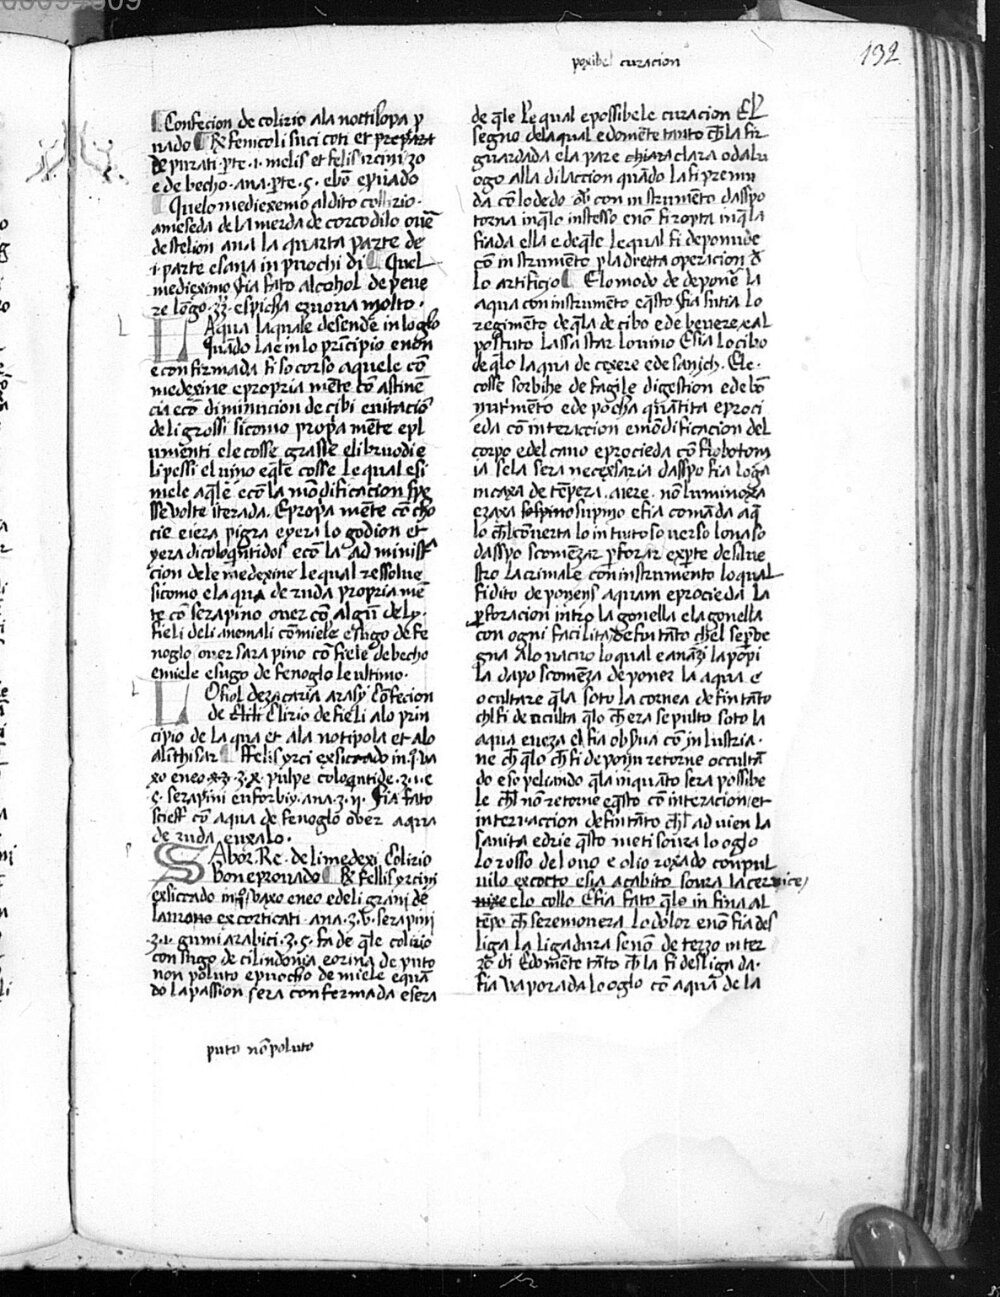 poxibel curacion
132
Confecion de colirio ala noctilopa p
uado ℞ fenicoli suci coti et preparat
de purati · pte · i · melis et felis ircini zo
e de becho · ana · pte · s · ebo᷃ epuado
Quelo mediexemo aldito colirio ·
ameseda de la merda de corcodilo oue᷃
de stelion ana la quarta parte de
· i · parte esana in puochi di Quel
mediesimo sia fato alcohol de peue
re lo᷃go · ʒʒ · espicha eziova molto ·
LAqua laquale desende in loglo
Qua᷃do la e in lo pri᷃cipio e non
e confirmada si socorso aquele co᷃
medexine epropria me᷃te co᷃ astine᷃
cia eco᷃ diminucion de cibi euitacio᷃
de li grossi sicomo propa me᷃te e pl
umenti ele cosse grasse eli bruodi e
li pessi el vino eq᷃le cosse le qual esi
mele aq᷃le eco᷃ la mo᷃dificacion spe
sse volte iterada. Epropa me᷃te co᷃ cho
cie eiera pigra eyera lo godion et
yera dicoloquitidos eco᷃ la administ᷃
cion dele medexine lequal ressolue
sicomo ela qua de ruda propria me᷃
te co᷃ serapino ouer co᷃ algu᷃ de ly ·
fieli deli anemali co᷃ miele esugo de fe
noglo ouer sarapino co᷃ fiele de becho
emiele esugo de fenoglo le ultimo ·
LOfiol de zacaria arasy Co᷃fecion
de Elcti Clirio de fieli alo prin
cipio de la qua et ala notipola et alo
alinthisar ℞ Felis yrci exsiccado in · q · ua
xo eneo · x · ʒ · x · pulpe coloquntide · ʒ · i · e
· s · serapini euforbiy · ana · ʒ · ii · Sia fato
scieff co᷃ aqua de fenoglo over aqua
de ruda euxalo ·
SAbor · Re · de li medexi Colirio
bon eprouado ℞ Fellis yrcini
exsiccado in uaxo eneo edeli grani de
laurano excorticati · ana · ʒ · v · serapini
· ʒ · i · gumi arabici · ʒ · s · fa de q᷃le colirio
con sugo de cilindonia eorina de puto
non poluto epuocho de miele equa᷃
do la passion sera confermada esera
puto no᷃ poluto
de q᷃le le qual epossibele curacion El
segno dela qual e dome᷃te tanto ch᷃ la si
guardada ela pare chiara clara odalu
ogo alla dilaccion qua᷃do la si premu
da co᷃ lo dedo ou᷃ con instrume᷃to daspo
torna inq᷃lo instesso eno᷃ si ropta inq᷃la
fiada ella e de q᷃le lequal si deponude
co᷃ instrume᷃to p la dretta operacion d᷃
lo artificio El o modo de depone᷃ la
aqua con instrume᷃to eq᷃sto sia sutia lo
regime᷃to de q᷃la de cibo ede beuere e al
postuto lassa star lo uino Esia lo cibo
de q᷃lo laqua de cexere ede sanich · Ele ·
cosse sorbihe de fagile digestion ede bo᷃
nutrime᷃to ede pocha qua᷃tita eproci
eda co᷃ interaccion emo᷃dificacion del
corpo edel cauo eprocieda co᷃ flobotom
ia se la sera necessaria daspo sia loga
in caxa de te᷃pera · aiere · no᷃ luminoxa
ezaxa sospino supino esia coma᷃da aq᷃
lo ch᷃l co᷃uerta lo intuito so verso lo naso
daspo scome᷃zar pforar expte de silue
stro lacrimale con instrumento loqual
si dito de ponens aquam eprocieda la
pforacion intro la gonella ela gonella
con ogni facilita de fin ta᷃to ch᷃el sepde
gna alo uacuo loqual e ana᷃zi la popi
la dapo scome᷃za de poner la aqua e
ocultare q᷃la soto la cornea de fin ta᷃to
ch᷃l si de oculta q᷃lo ch᷃ era sepulto soto la
aqua eueza el sia obsua co᷃ in lustria ·
ne ch᷃ q᷃lo ch᷃ si de pon᷃ retorne occulta᷃
do eso veliando q᷃la inqua᷃to sera possibe
le ch᷃l no᷃ retorne eq᷃sto co᷃ interacion et
interraccion de fin ta᷃to ch᷃l ad uien la
sanita edrie q᷃sto meti soura lo oglo
lo rosso del ouo e olio roxado con pul
uilo excocto esia acabito soura la ceruice
nixe elo collo Esia fato q᷃lo in fina al
te᷃po ch᷃ seremonera lo dolor eno᷃ sia des
liga la ligadura se no᷃ de terzo in ter
zo᷃ di Edome᷃te ta᷃to ch᷃ la si desliga da ·
sia vaporada lo oglo co᷃ aqua de la